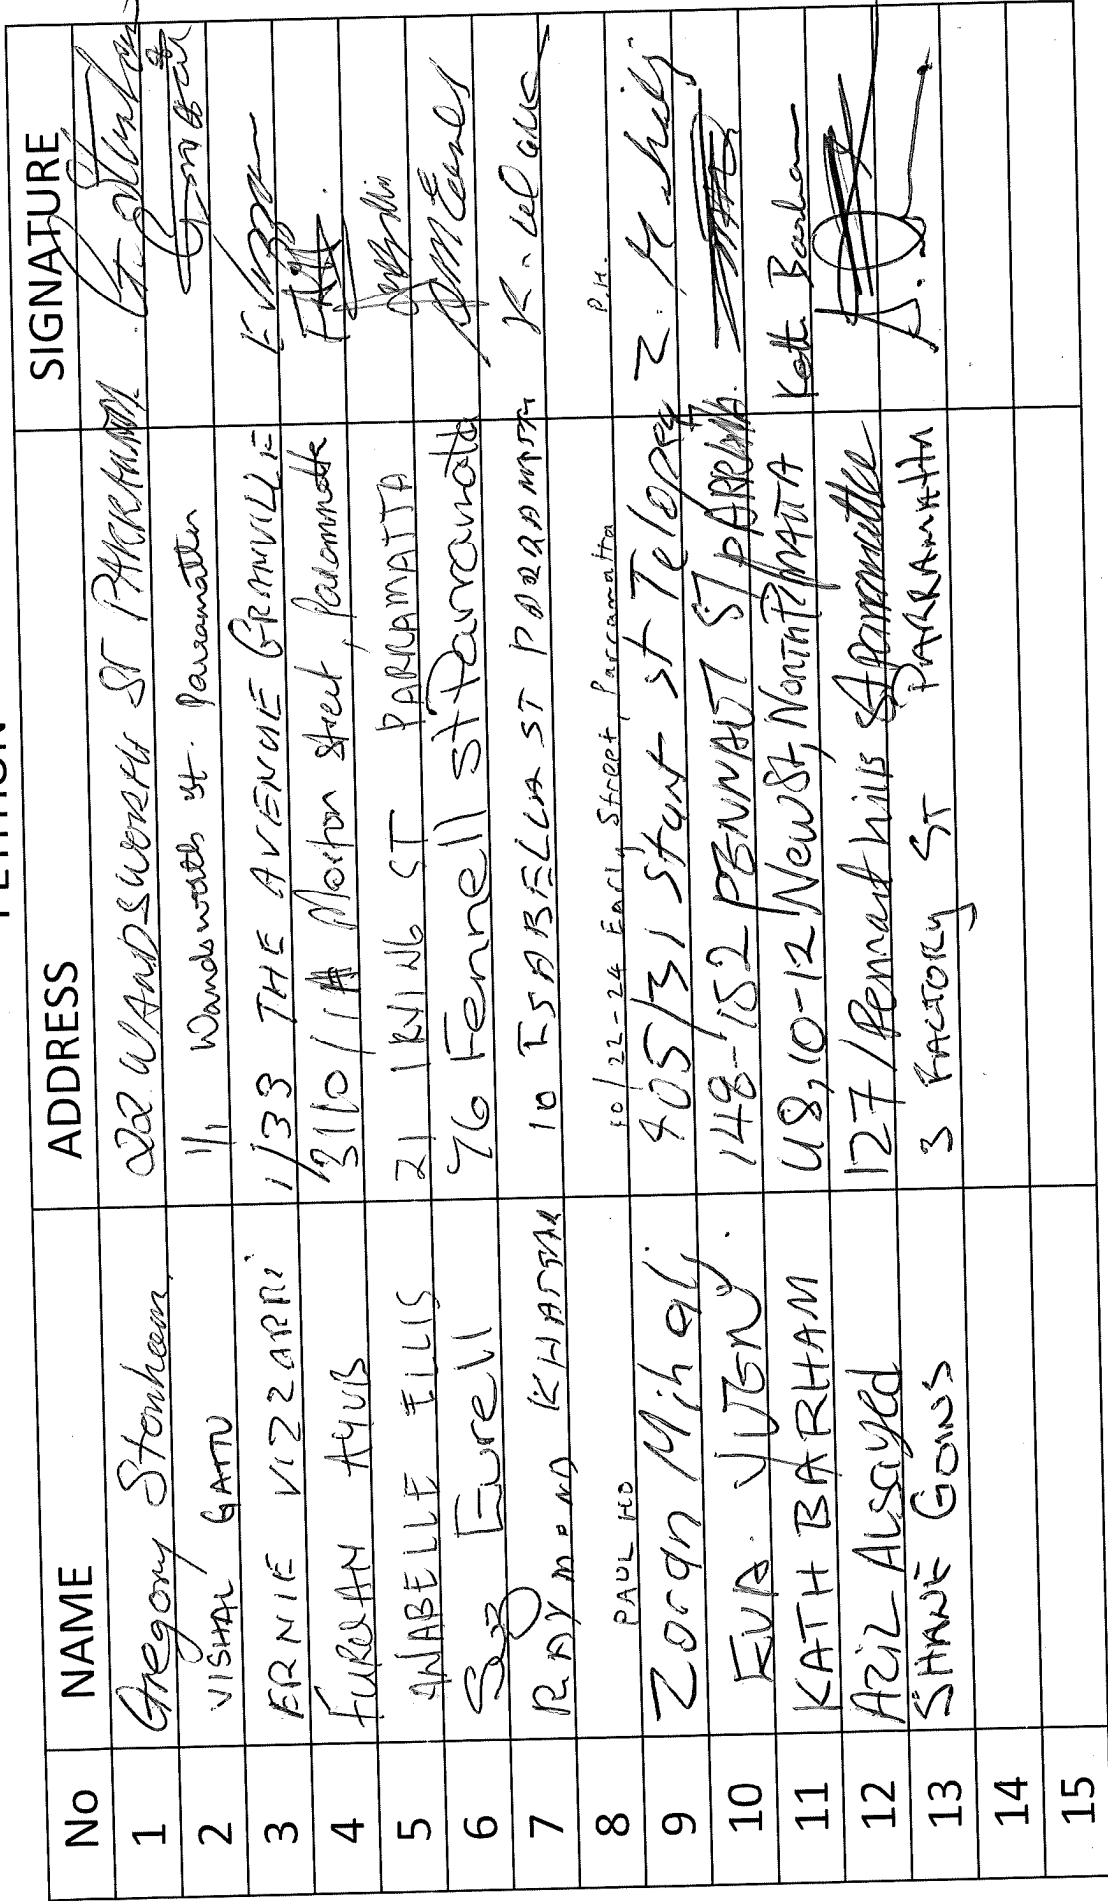 PETITION
No NAME ADDRESS SIGNATURE
1 Gregory Stonham 22 WANDSWORTH ST PARRAMATTA
2 VISHAL GATTU 1/1 Wandsworth st. Parramatta
3 ERNIE VIZZARRI 1/33 THE AVENUE GRANVILLE
4 FURQAN AYUB 310/1A Morton street, Parramatta
5 ANABELLE ELLIS 21 KING ST PARRAMATTA
6 Eurell 76 Fennell st Parramatta
7 RAYMOND KHATTAR 10 ISABELLA ST PARRAMATTA
8 PAUL HO 10/22-24 Early Street, Parramatta P.H.
9 Zoran Mihalj. 405/31 Sturt st Telopea Z. Mihalj
10 EVA 148-152 PENNANT ST PARRAMATTA
11 KATH BARHAM U8, 10-12 New St, NORTH P/MATTA Kath Barham
12 AZIZ ALSAYED 127/Pennant hills St Parramatta
13 SHANE GOINS 3 FACTORY ST PARRAMATTA
14
15